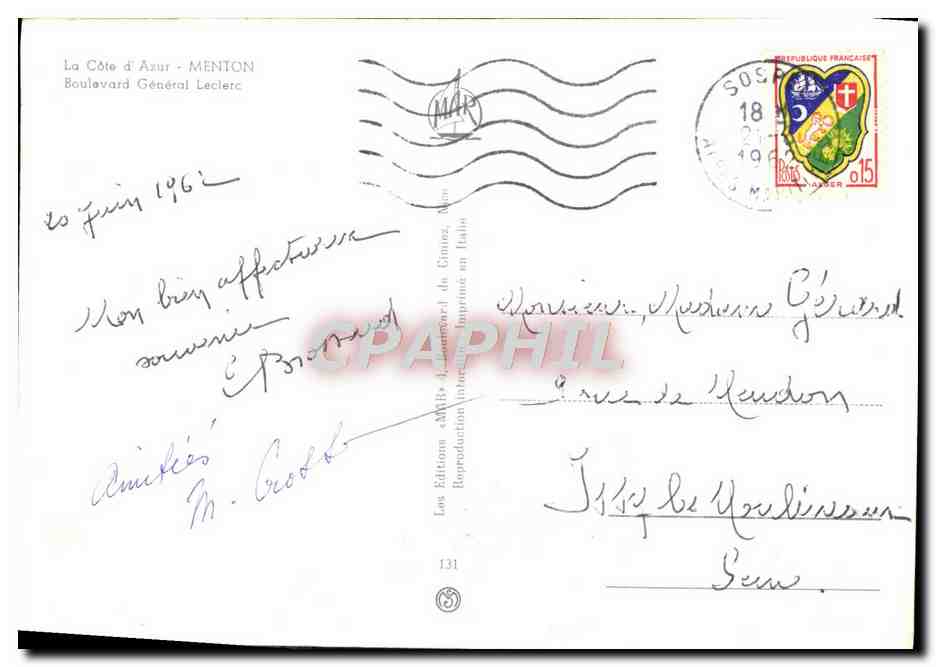 La Côte d'Azur - MENTON
Boulevard Général Leclerc
MAR
SOSP
18 H
21
1962
REPUBLIQUE FRANÇAISE
Postes
0,15
ALGER
20 Juin 1962
Mon bien affectueux
souvenir
Amitiés
M.
Monsieur, Madame Gérard
rue de Meudon
Issy les Moulineaux
Seine.
CPAPHIL
Les Editions «MAR» 4, Boulevard de Cimiez, Nice
Reproduction interdite Imprimé en Italie
131